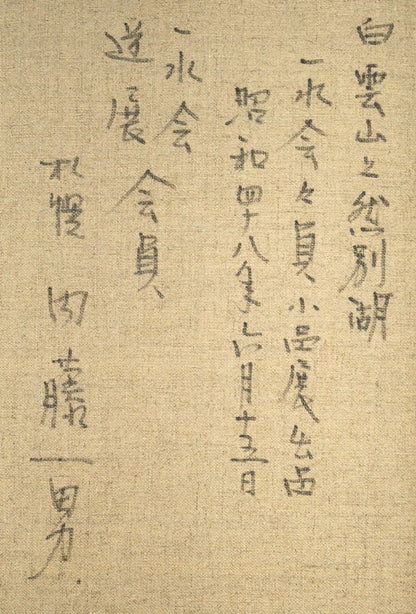 白雲山と然別湖
一水会々員小品展出品
昭和四十八年六月十五日
一水会
道展 会員
札幌 内藤一男